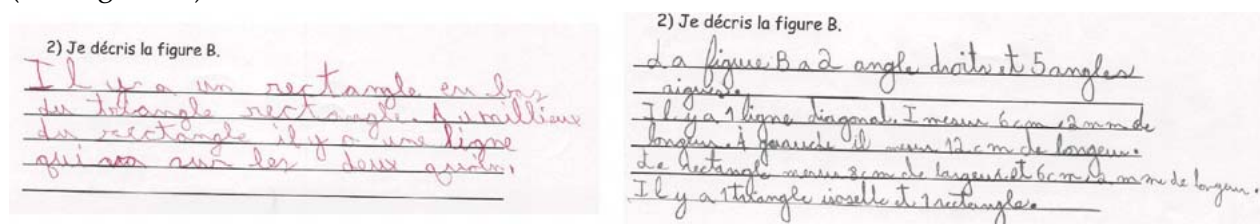 2) Je décris la figure B.
Il y a un rectangle en bas
du triangle rectangle. A umillieux
du rectangle il y a une ligne
qui sur les deux
2) Je décris la figure B.
La figure B a 2 angle droits et 5 angles
aiguës.
Il y a 1 ligne diagonal. I mesure 6cm 2mm de
longeur. À gauche il mesur 12 cm de longeur.
Le rectangle mesure 8cm de largeur et 6cm 2 mm de longeur.
Il y a 1 triangle isoselle et 1 rectangle.